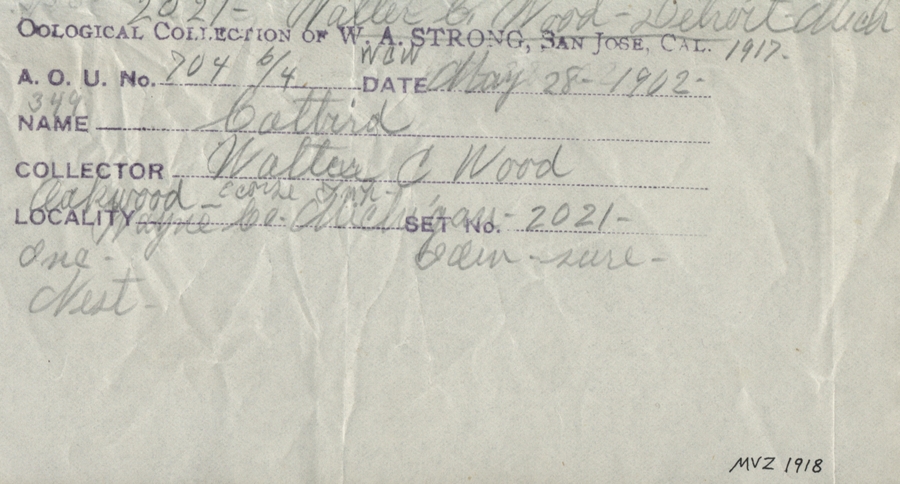 2021- Walter C. Wood - Detroit Mich
OOLOGICAL COLLECTION OF W. A. STRONG, SAN JOSE, CAL. 1917.
WCW
A. O. U. No. 704 6/4 DATE May 28-1902-
349
NAME Catbird
COLLECTOR Walter C Wood
Oakwood - Ecorse Twp.-
LOCALITY Wayne Co. Michigan - SET No. 2021-
One - Iden - sure -
Nest -
MVZ 1918